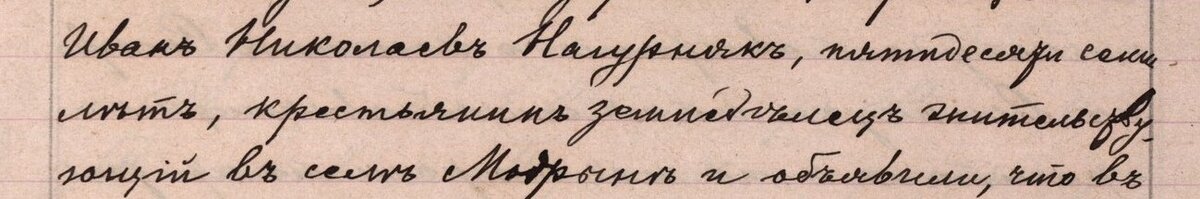 Иванъ Николаевъ Нагурнякъ, пятидесяти семи
лѣтъ, крестьянинъ земледѣлецъ жительству-
ющій въ селѣ Модрынѣ и объявили, что въ